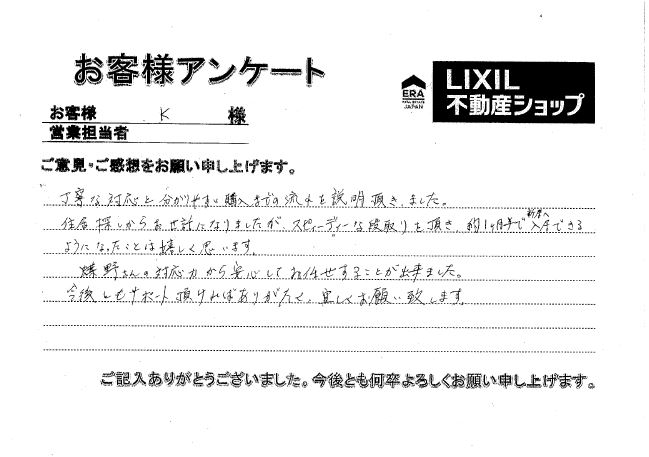 お客様アンケート
ERA
REAL ESTATE
JAPAN
LIXIL
不動産ショップ
お客様 K 様
営業担当者
ご意見・ご感想をお願い申し上げます。
丁寧な対応と分かりやすい購入までの流れを説明頂きました。
住居探しからお世話になりましたが、スピーディーな段取りを頂き、約1ヶ月半で新居へ入居できる
ようになったことは嬉しく思います。
野さんの対応力から安心してお任せすることが出来ました。
今後ともサポート頂ければありがたく、宜しくお願い致します。
ご記入ありがとうございました。今後とも何卒よろしくお願い申し上げます。